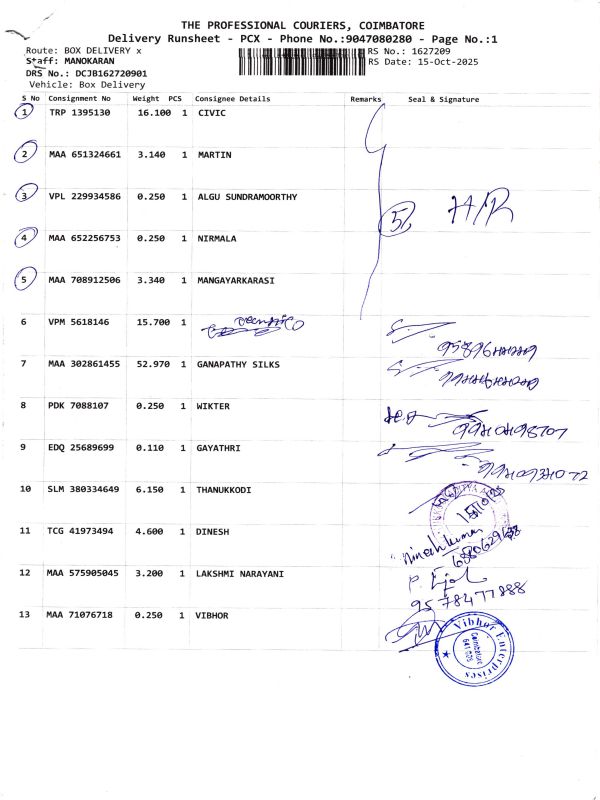 THE PROFESSIONAL COURIERS, COIMBATORE
Delivery Runsheet - PCX - Phone No.:9047080280 - Page No.:1
Route: BOX DELIVERY x RS No.: 1627209
Staff: MANOKARAN RS Date: 15-Oct-2025
DRS No.: DCJB162720901
Vehicle: Box Delivery
S No Consignment No Weight PCS Consignee Details Remarks Seal & Signature
1 TRP 1395130 16.100 1 CIVIC
2 MAA 651324661 3.140 1 MARTIN
3 VPL 229934586 0.250 1 ALGU SUNDRAMOORTHY
5 H/R
4 MAA 652256753 0.250 1 NIRMALA
5 MAA 708912506 3.340 1 MANGAYARKARASI
6 VPM 5618146 15.700 1
7 MAA 302861455 52.970 1 GANAPATHY SILKS
8 PDK 7088107 0.250 1 WIKTER
9 EDQ 25689699 0.110 1 GAYATHRI
10 SLM 380334649 6.150 1 THANUKKODI
11 TCG 41973494 4.600 1 DINESH
12 MAA 575905045 3.200 1 LAKSHMI NARAYANI
9578477888
13 MAA 71076718 0.250 1 VIBHOR
Vibhor Enterprises
Coimbatore
641 026